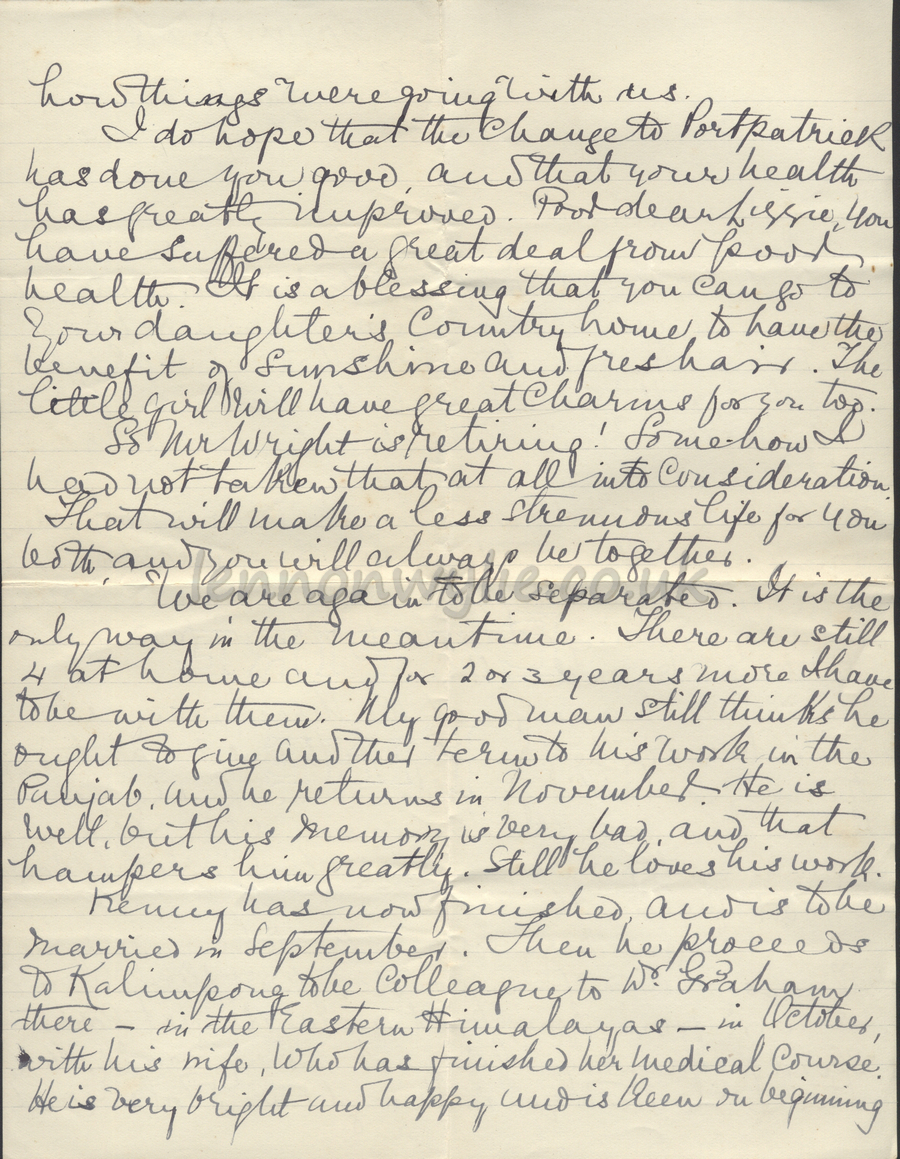 how things were going with us.
I do hope that the change to Portpatrick
has done you good, and that your health
has greatly improved. Poor dear Lizzie, you
have suffered a great deal from poor
health. It is a blessing that you can go to
your daughter's Country home to have the
benefit of sunshine and fresh air. The
little girl will have great Charms for you too.
So Mr Wright is retiring! Somehow I
had not taken that at all into Consideration.
That will make a less strenuous life for you
both, and you will always be together.
lennonwylie.co.uk
We are again to be separated. It is the
only way in the meantime. There are still
4 at home and for 2 or 3 years more I have
to be with them. My good man still thinks he
ought to give another term to his work in the
Panjab, and he returns in November. He is
well, but his memory is very bad, and that
hampers him greatly. Still he loves his work.
Kenny has now finished, and is to be
married in September. Then he proceeds
to Kalimpong to be Colleague to Dr. Graham
there – in the Eastern Himalayas – in October,
with his wife, who has finished her medical Course.
He is very bright and happy and is keen on beginning